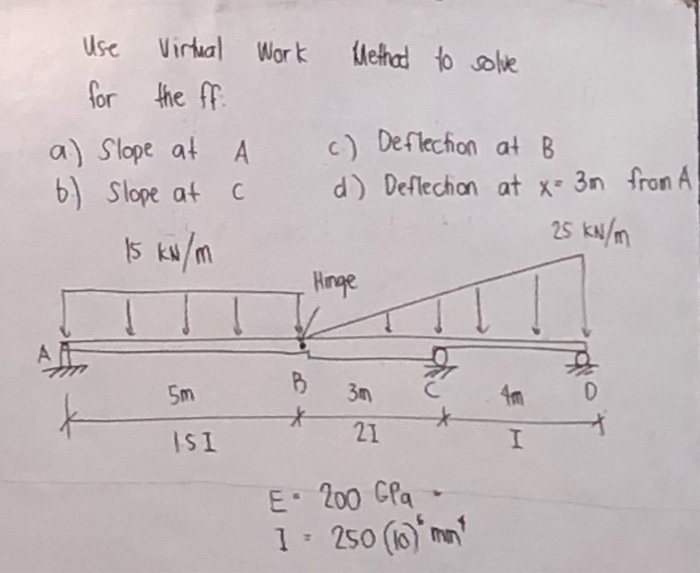 Use Virtual Work Method to solve
for the ff:
a.) Slope at A
c.) Deflection at B
b.) Slope at C
d.) Deflection at x = 3m from A
25 kN/m
15 kN/m
Hinge
A
B
C
D
5m
3m
4m
1.5 I
2I
I
E = 200 GPa
I = 250 (10)⁶ mm⁴